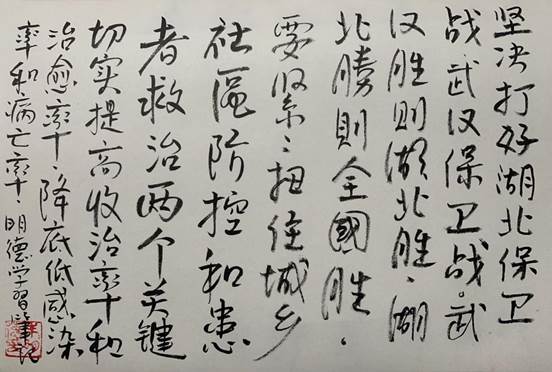 坚决打好湖北保卫
战、武汉保卫战。武
汉胜则湖北胜,湖
北勝則全國胜。
要紧〻扭住城乡
社區防控和患
者救治两个关键
切实提高收治率和
治愈率、降底低感染
率和病亡率。明德学習筆记